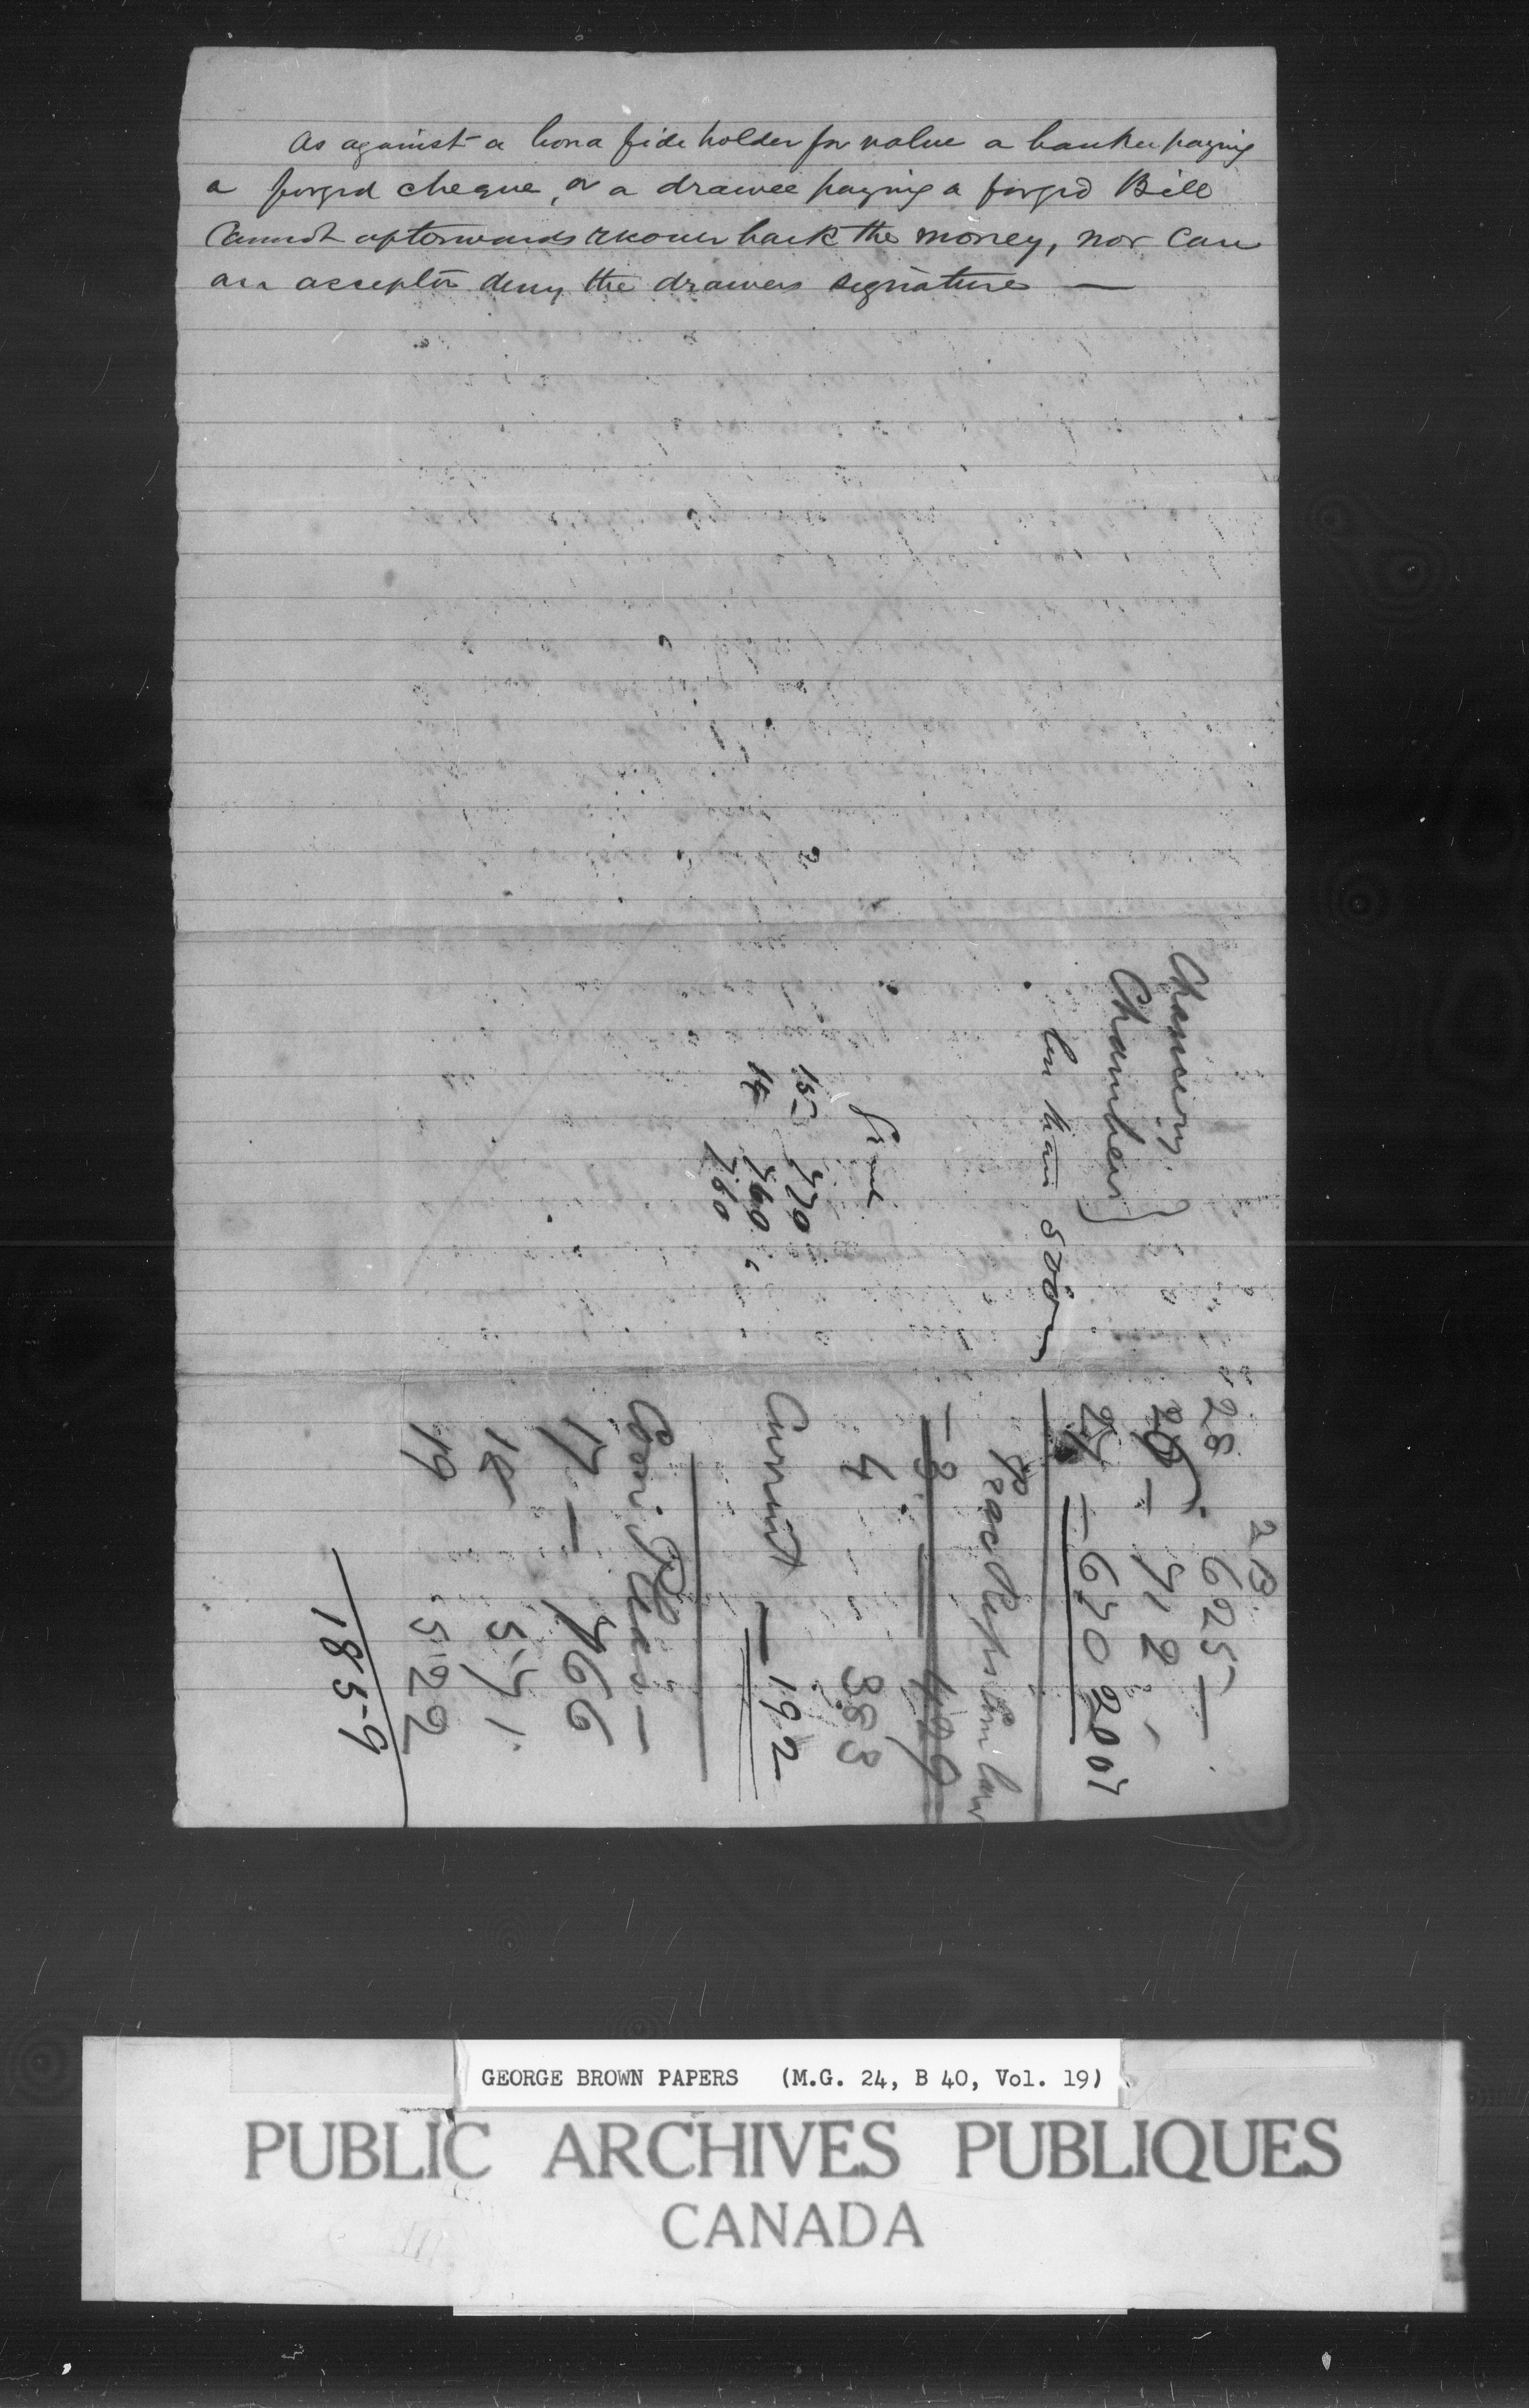 As against a bona fide holder for value a banker paying
a forged cheque, or a drawee paying a forged Bill
Cannot afterwards recover back the money, nor can
an acceptor deny the drawers signature —
Chancery
Chambers }
500
15 770
14 760
760
28 2 B. 625 —
26 — 712
27 — 670 2007
Prac Reps Com Law
— 3. 429
4 383
Current — 192
Com Pleas —
17 — 766
18 571.
19 522
1859
GEORGE BROWN PAPERS (M.G. 24, B 40, Vol. 19)
PUBLIC ARCHIVES PUBLIQUES
CANADA